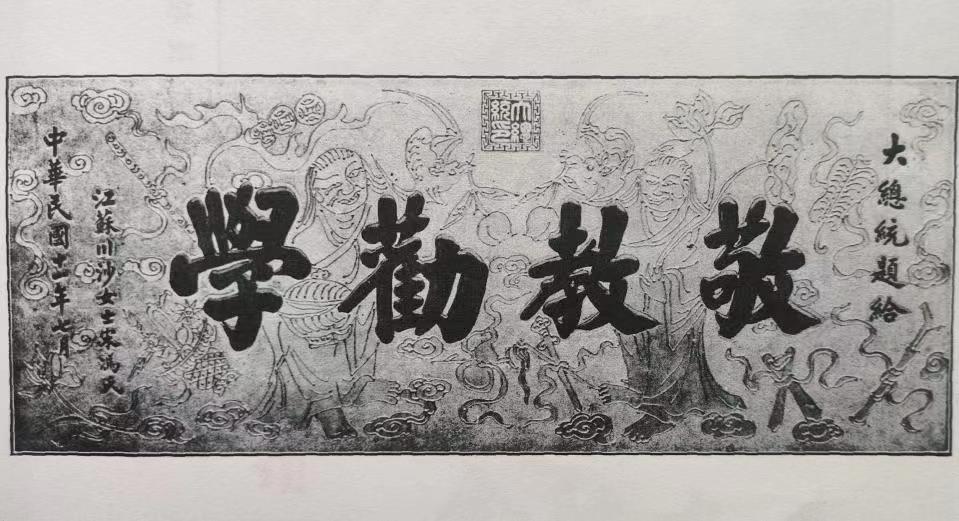 大總統題給
大總統印
敬教勸學
江蘇川沙女士宋馮氏
中華民國十一年七月